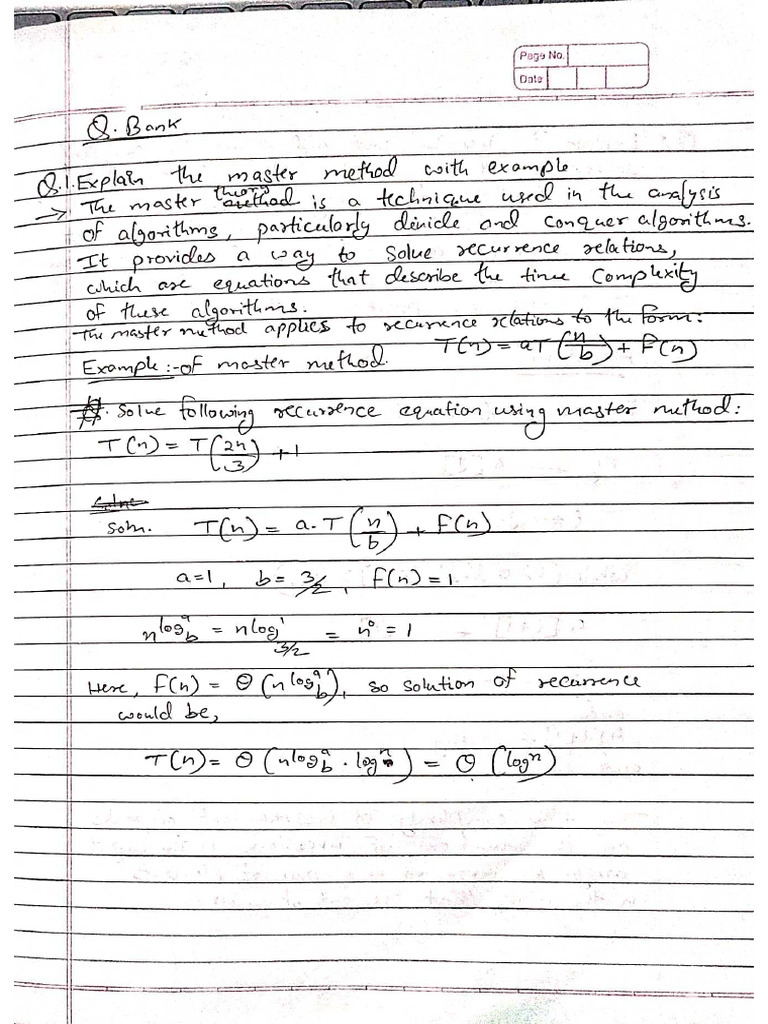 Page No.
Date
Q. Bank
Q.1. Explain the master method with example.
→ The master theorem method is a technique used in the analysis
of algorithms, particularly devide and conquer algorithms.
It provides a way to solve recurrence relations,
which are equations that describe the time complexity
of these algorithms.
The master method applies to recurrence relations to the form:
T(n) = aT(n/b) + F(n)
Example :- of master method.
Q. Solve following recurrence equation using master method:
T(n) = T(2n/3) + 1
Solve
Soln. T(n) = a.T(n/b) + F(n)
a=1, b= 3/2, F(n) = 1
n^log_b^a = n^log_3/2^1 = n^0 = 1
Here, F(n) = Θ(n^log_b^a), so solution of recurrence
would be,
T(n) = Θ(n^log_b^a . log n) = Θ(log n)